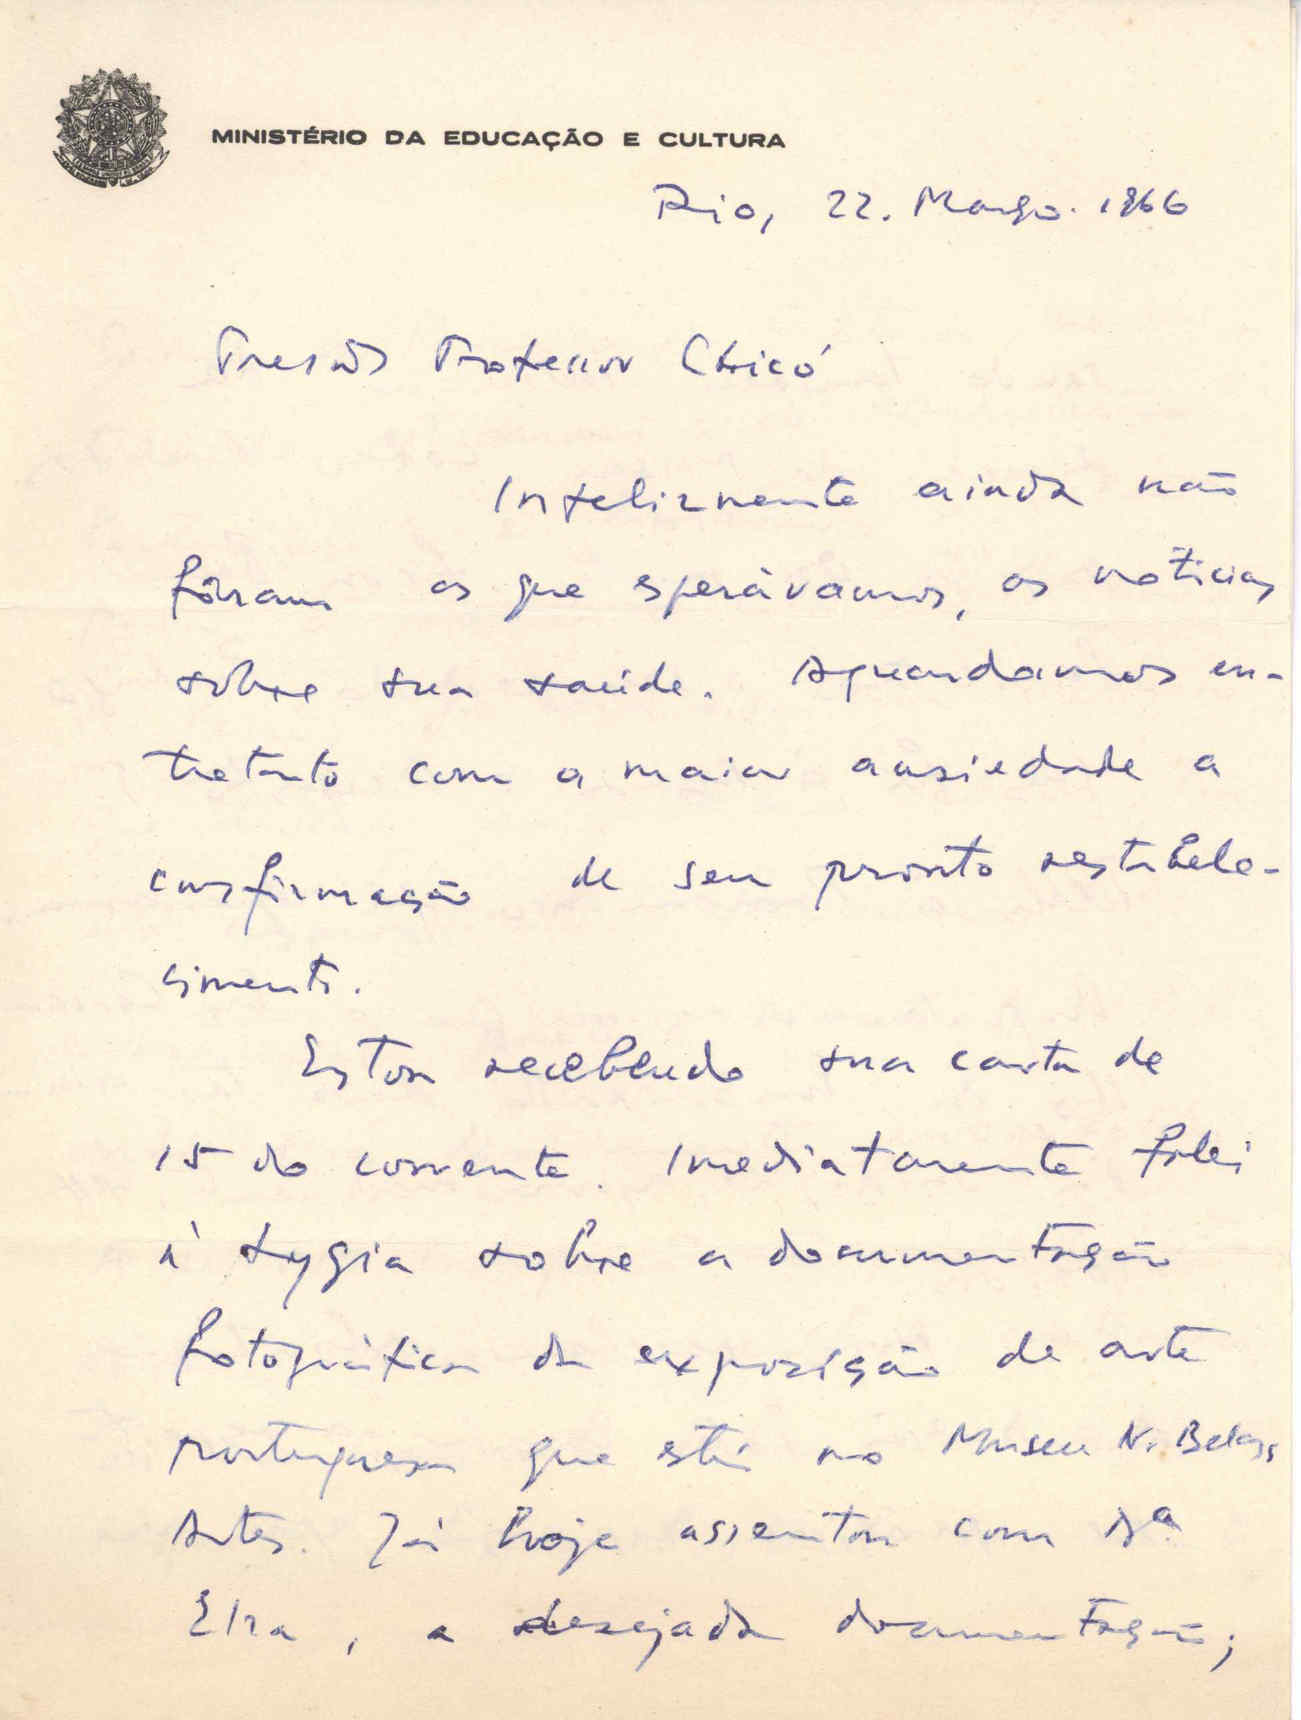 MINISTÉRIO DA EDUCAÇÃO E CULTURA
Rio, 22. Março. 1966
Presado Professor Chicó
Infelizmente ainda não
fôram as que esperávamos, as notícias
sôbre sua saúde. Aguardamos en-
tretanto com a maior ansiedade a
confirmação de seu pronto restabele-
cimento.
Estou recebendo sua carta de
15 do corrente. Imediatamente falei
à Lygia sobre a documentação
fotográfica da exposição de arte
portuguesa que está no Museu N. Belas,
Artes. Já hoje assentou com Da
Elza, a desejada documentação;